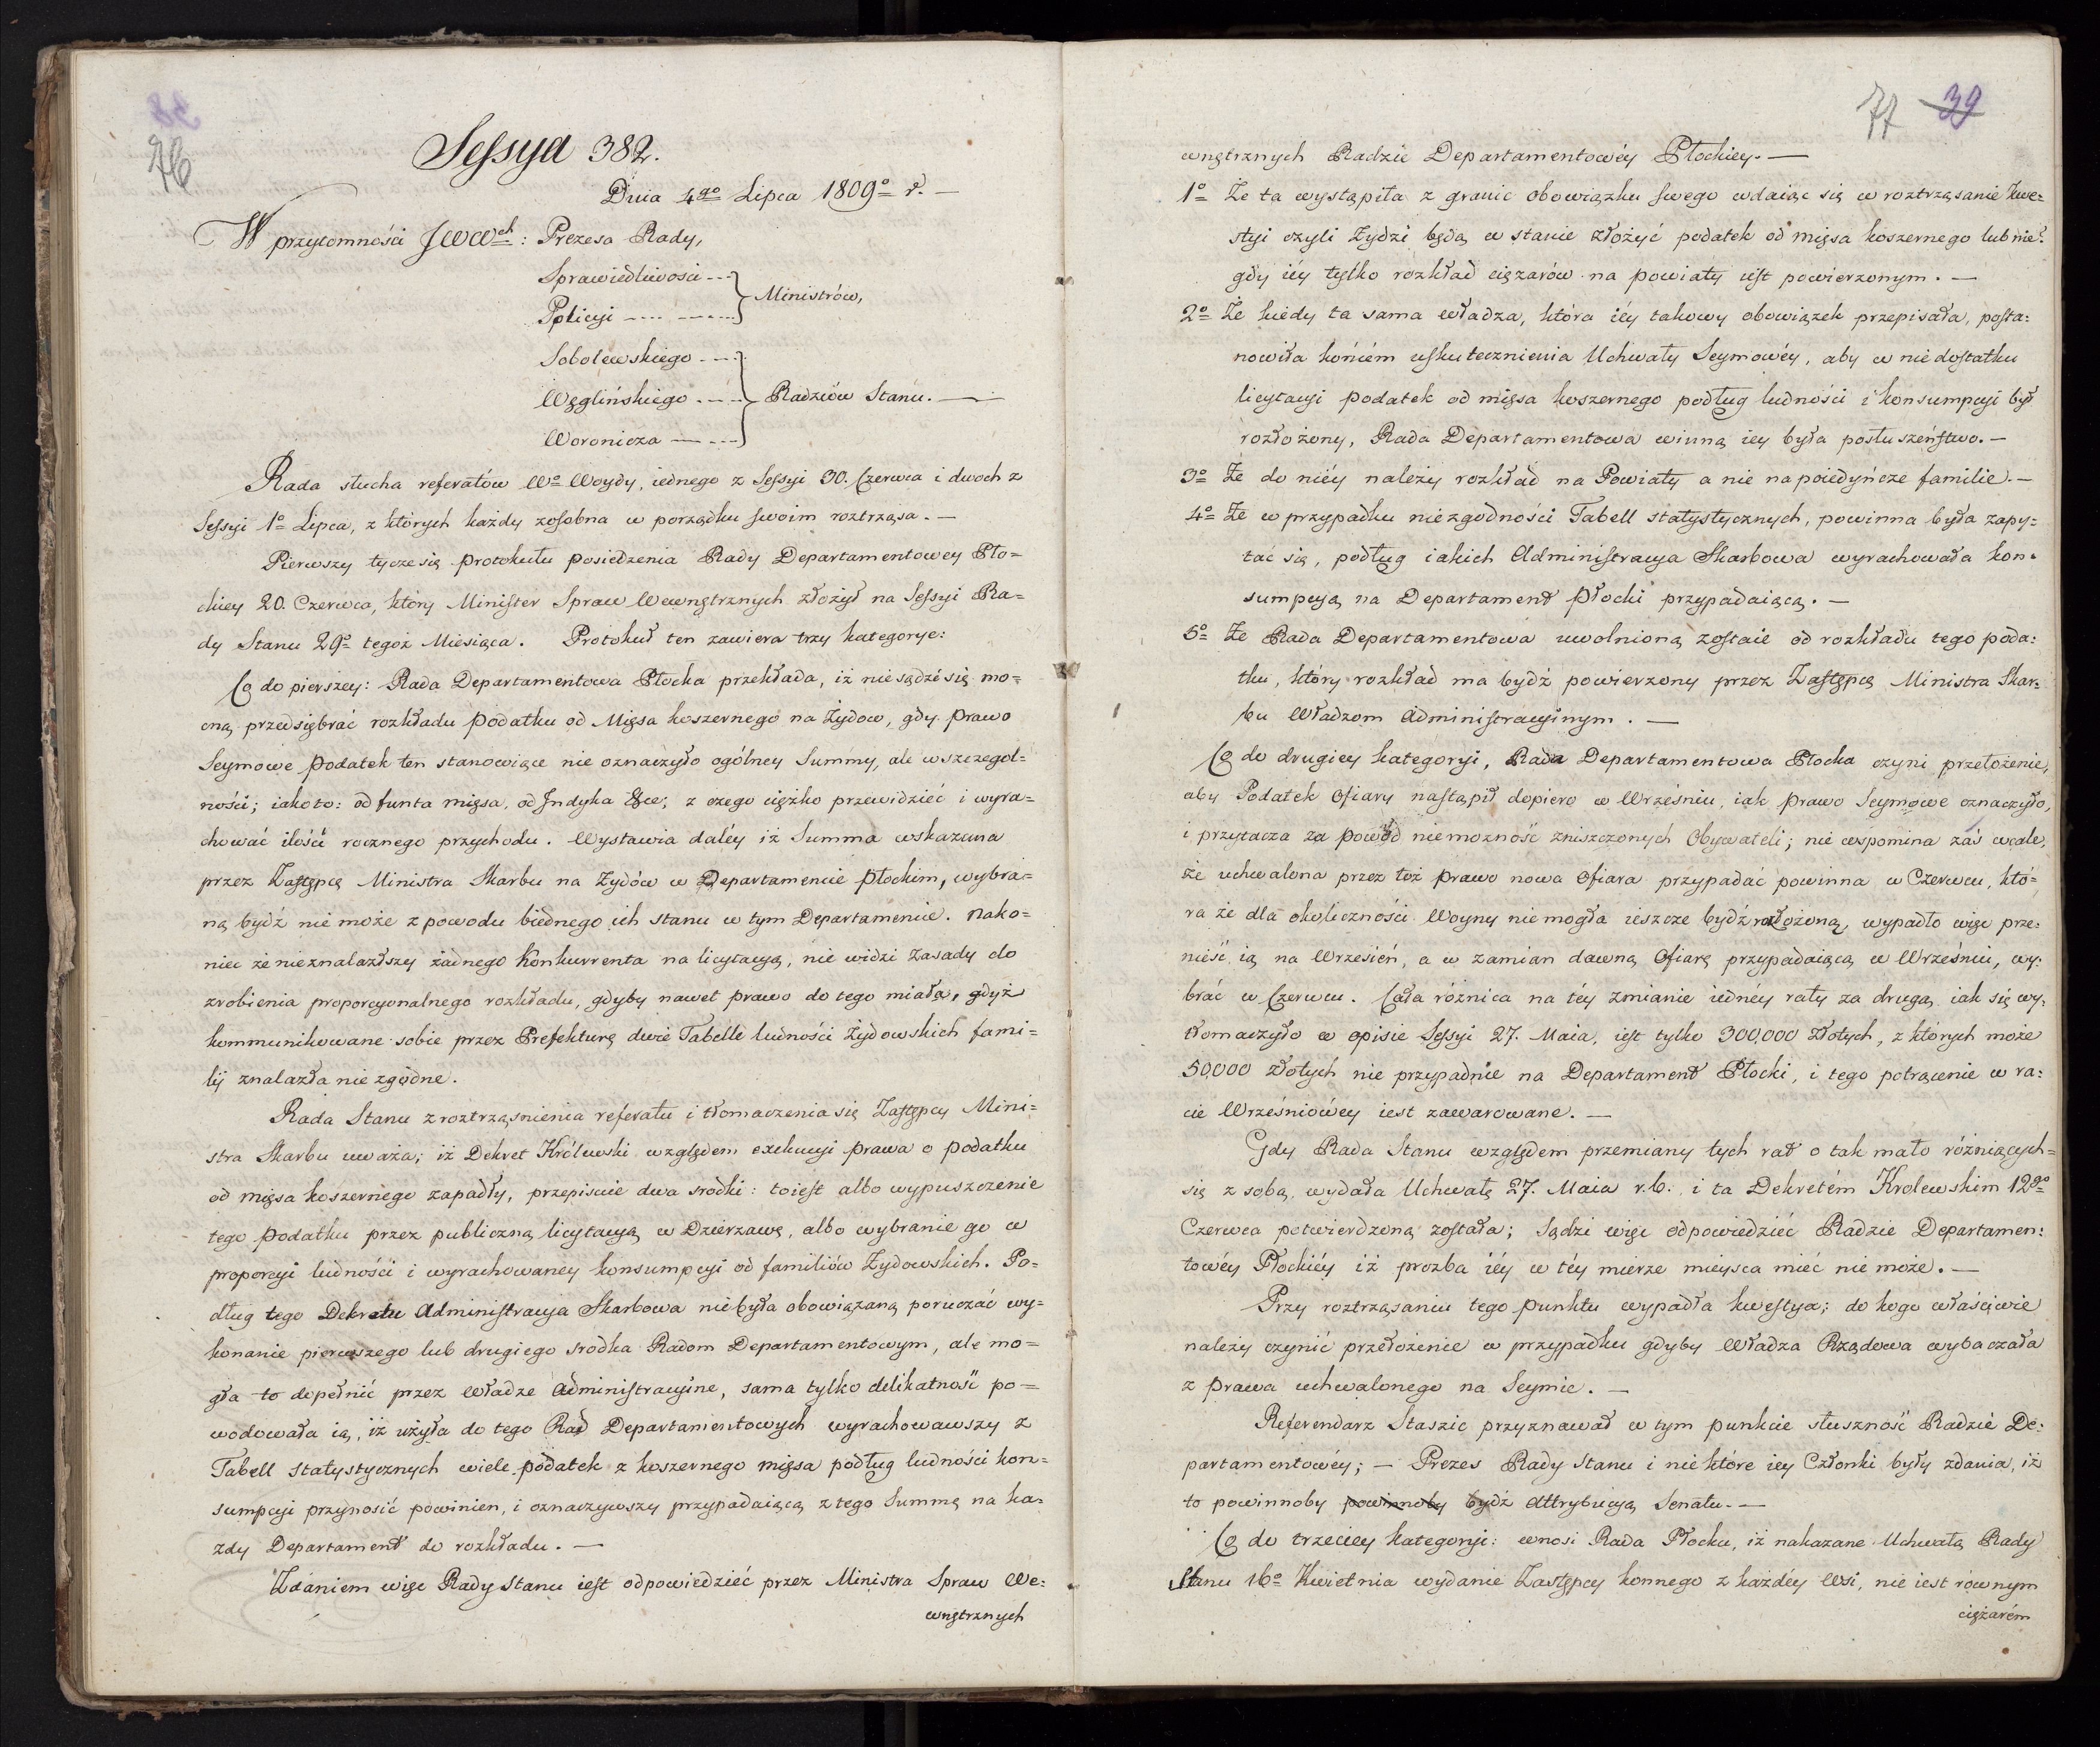 38
76
Sessya 382.
Dnia 4go Lipca 1809o r. —
W przytomności JWWch: Prezesa Rady,
Sprawiedliwości
Policyi
Ministrów,
Sobolewskiego
Węglińskiego
Woronicza
Radzców Stanu. —
Rada słucha referatów Wo Woydy, iednego z Sessyi 30. Czerwca i dwoch z
Sessyi 1o Lipca, z których każdy zosobna w porządku swoim roztrząsa. —
Pierwszy tycze się protokułu posiedzenia Rady Departamentowey Pło=
ckiey 20. Czerwca, który Minister Spraw Wewnętrznych złożył na Sessyi Ra=
dy Stanu 29o tegoż Miesiąca. Protokuł ten zawiera trzy kategorye:
Co do pierszey: Rada Departamentowa Płocka przekłada, iż nie sądzi się mo=
cną przedsiębrać rozkładu podatku od Mięsa koszernego na Żydow, gdy prawo
Seymowe podatek ten stanowiące nie oznaczyło ogólney Summy, ale wszczegól=
ności; iakoto: od funta mięsa, od Jndyka &ce; z czego ciężko przewidzieć i wyra=
chować ilość rocznego przychodu. Wystawia daléy iż Summa wskazana
przez Zastępcę Ministra Skarbu na Żydów w Departamencie Płockim, wybra=
ną bydź nie może z powodu biednego ich stanu w tym Departamencie. Nako=
niec że nieznalazłszy żadnego Konkurrenta na licytacyą, nie widzi zasady do
zrobienia proporcyonalnego rozkładu, gdyby nawet prawo do tego miała, gdyż
kommunikowane sobie przez Prefekturę dwie Tabelle ludności Żydowskich fami=
lij znalazła niezgodne.
Rada Stanu z roztrząsnienia referatu i tłomaczenia się Zastępcy Mini=
stra Skarbu uważa; iż Dekret Królewski względem exekucyi prawa o podatku
od mięsa koszernego zapadły, przepisuie dwa srodki: toiest albo wypuszczenie
tego podatku przez publiczną licytacyą w Dzierzawę, albo wybranie go w
proporcyi ludności i wyrachowaney konsumpcyi od familiów Żydowskich. Po=
dług tego Dekretu Administracya Skarbowa nie była obowiązaną poruczać wy=
konanie pierwszego lub drugiego srodka Radom Departamentowym, ale mo=
gła to dopełnić przez władze Administracyine, sama tylko delikatność po=
wodowała ią, iż użyła do tego Rad Departamentowych wyrachowawszy z
Tabell statystycznych wiele podatek z koszernego mięsa podług ludności kon=
sumpcyi przynosić powinien, i oznaczywszy przypadaiącą z tego Summę na ka=
żdy Departament do rozkładu. —
Zdaniem więc Rady Stanu iest odpowiedzieć przez Ministra Spraw We:
wnętrznych
77 39
wnętrznych Radzie Departamentowéy Płockiey. —
1o Że ta wystąpiła z granic obowiązku swego wdaiąc się w roztrząsanie kwe=
styi czyli Żydzi będą w stanie złożyć podatek od mięsa koszernego lub nie:
gdy iéy tylko rozkład ciężarów na powiaty iest powierzonym. —
2o Że kiedy ta sama władza, która iéy takowy obowiązek przepisała, posta:
nowiła końcém uskutecznienia Uchwały Seymowéy, aby w niedostatku
licytacyi podatek od mięsa koszernego podług ludności i konsumpcyi był
rozłożony, Rada Departamentowa winną iey była posłuszeństwo. —
3o Że do niéy należy rozkład na Powiaty a nie na poiedyńcze familie. —
4o Że w przypadku niezgodności Tabell statystycznych, powinna była zapy=
tać się, podług iakich Administracya Skarbowa wyrachowała kon=
sumpcyą na Departament Płocki przypadaiącą. —
5o Że Rada Departamentowa uwolnioną zostaie od rozkładu tego poda:
tku, który rozkład ma bydź powierzony przez Zastępcę Ministra Skar=
bu Władzom Administracyinym. —
Co do drugiey kategoryi, Rada Departamentowa Płocka czyni przełożenie,
aby Podatek ofiary nastąpił dopiero w Wrześniu, iak prawo Seymowe oznaczyło,
i przytacza za powód niemozność zniszczonych Obywateli; nie wspomina zaś wcale,
że uchwalona przez toż prawo nowa ofiara przypadać powinna w Czerwcu, któ=
ra że dla okoliczności Woyny nie mogła ieszcze bydź rozłożoną, wypadło więc prze=
nieść ią na Wrzesień, a w zamian dawną ofiarę przypadaiącą w Wrześniu, wy:
brać w Czerwcu. Cała różnica na téy zmianie iednéy raty za drugą, iak się wy=
tłomaczyło w opisie Sessyi 27. Maia, iest tylko 300,000 złotych, z których może
50,000 złotych nie przypadnie na Departament Płocki, i tego potrącenie w ra:
cie Wrześniowéy iest zawarowane. —
Gdy Rada Stanu względem przemiany tych rat o tak mało różniących=
się z sobą, wydała Uchwałę 27. Maia r.b. i ta Dekretém Krolewskim 12go
Czerwca potwierdzoną została; Sądzi więc odpowiedzieć Radzie Departamen:
towéy Płockiéy iż prozba iéy w téy mierze mieysca mieć nie może. —
Przy roztrząsaniu tego punktu wypadła kwestya; do kogo właściwie
należy czynić przełożenie w przypadku gdyby Władza Rządowa wybaczała
z prawa uchwalonego na Seymie. —
Referendarz Staszic przyznawał w tym punkcie słuszność Radzie De:
partamentowéy; — Prezes Rady Stanu i niektóre iey Członki były zdania, iż
to powinnoby powinnoby bydź attrybucyą Senatu. —
Co do trzeciey kategoryi: wnosi Rada Płocka, iż nakazane Uchwałą Rady
Stanu 16o Kwietnia wydanie Zastępcy konnego z każdéy Wsi, nie iest równym
ciężarém